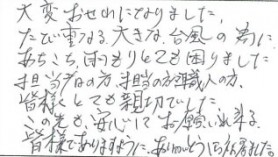 大変お世わになりました。
たび重なる、大きな、台風の為に、
あちこち、雨もりとても困りました
担当者の方、担当の職人の方、
皆様とても親切でした。
この先も、安心してお願い出来る、
皆様でありますように、ありがとうございました。